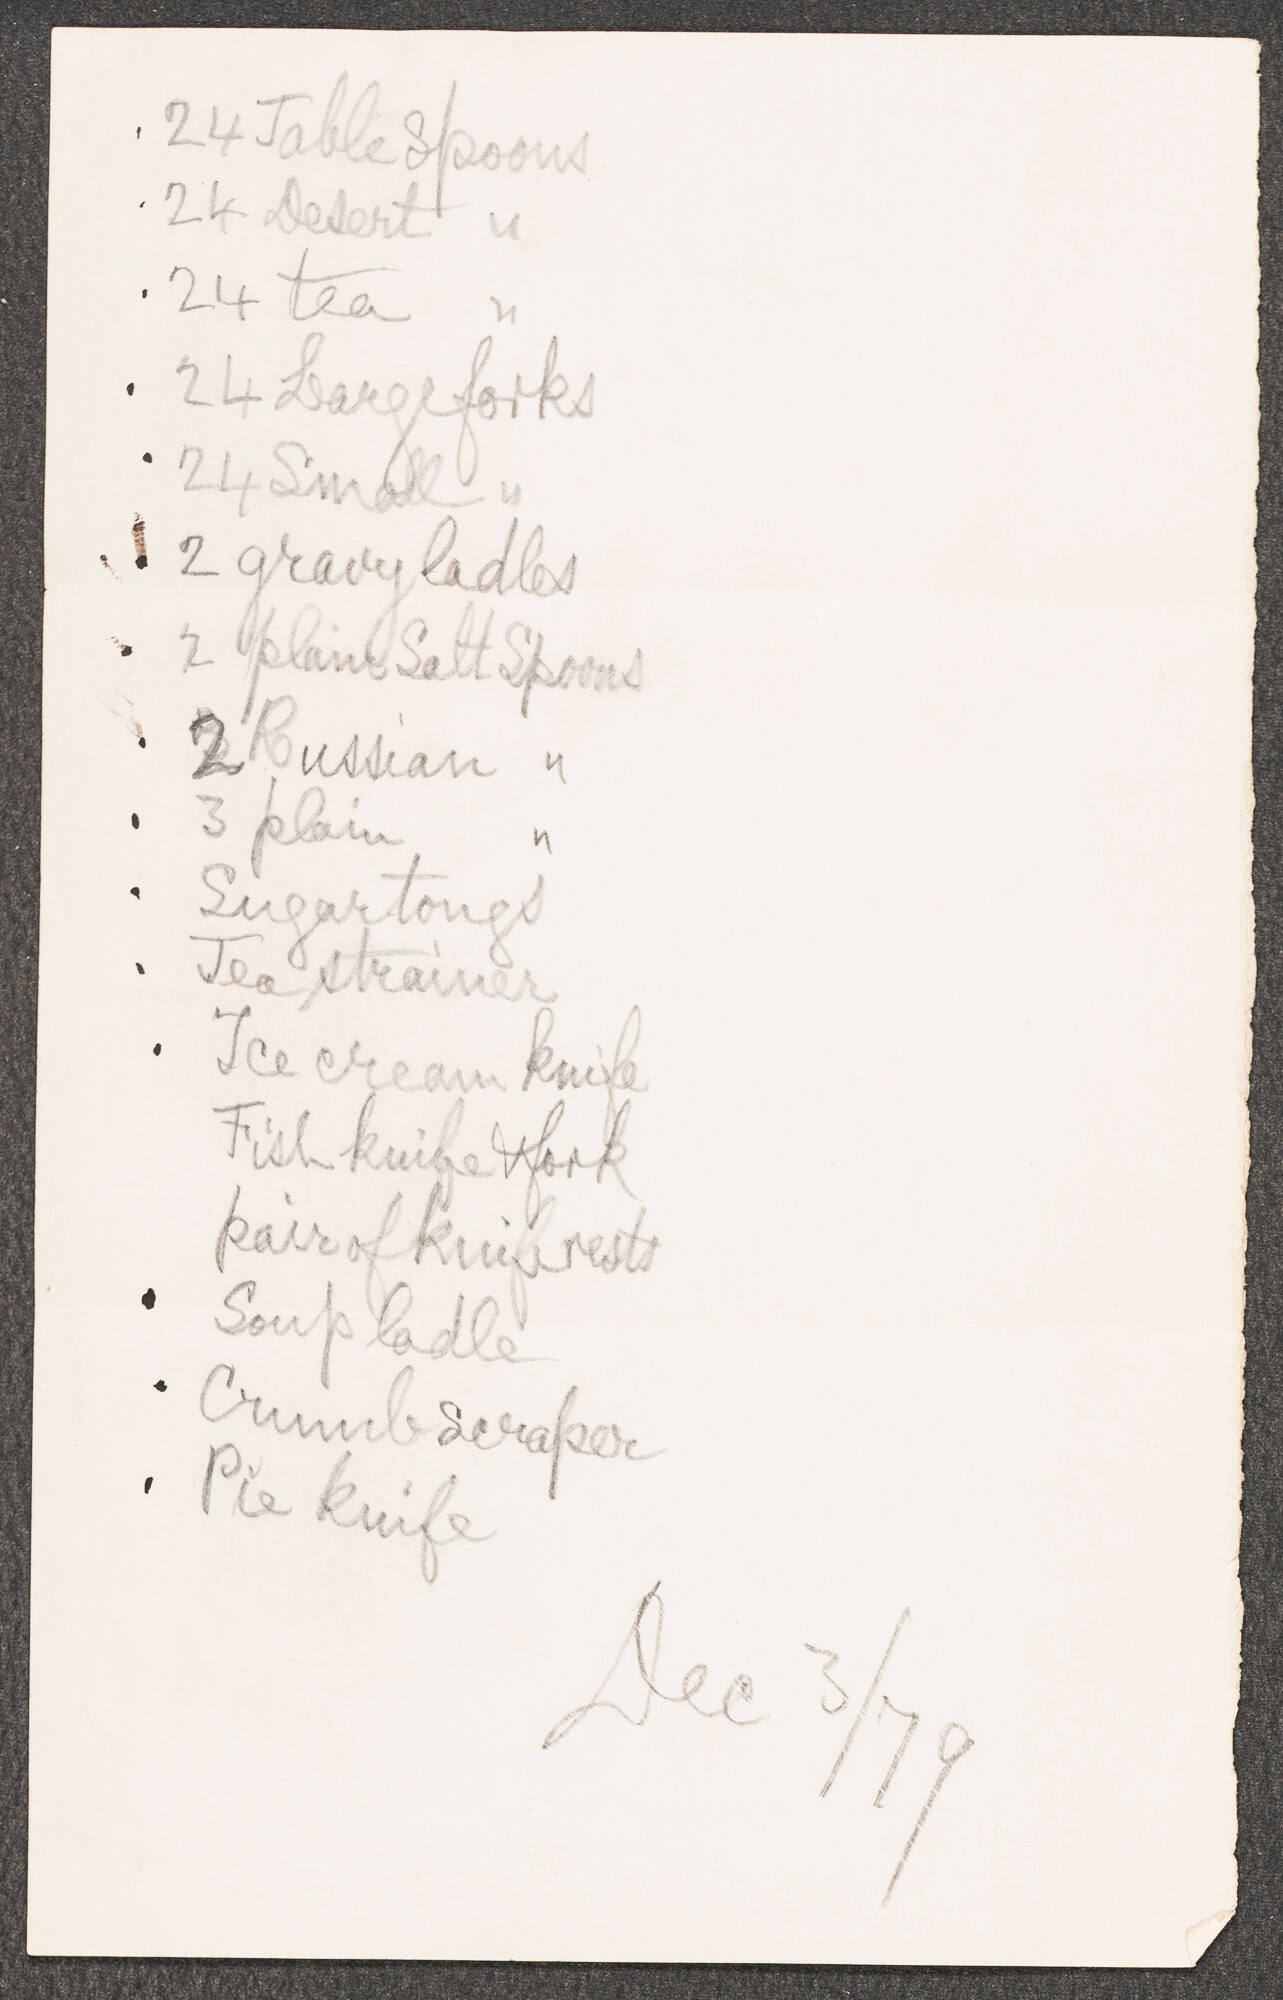 24 Table Spoons
24 Desert "
24 tea "
24 Large forks
24 Small "
2 gravy ladles
2 plain Salt Spoons
2 Russian "
3 plain "
Sugar tongs
Tea strainer
Ice cream knife
Fish knife & fork
pair of knife rests
Soup ladle
Crumb Scraper
Pie knife
Dec 3/79